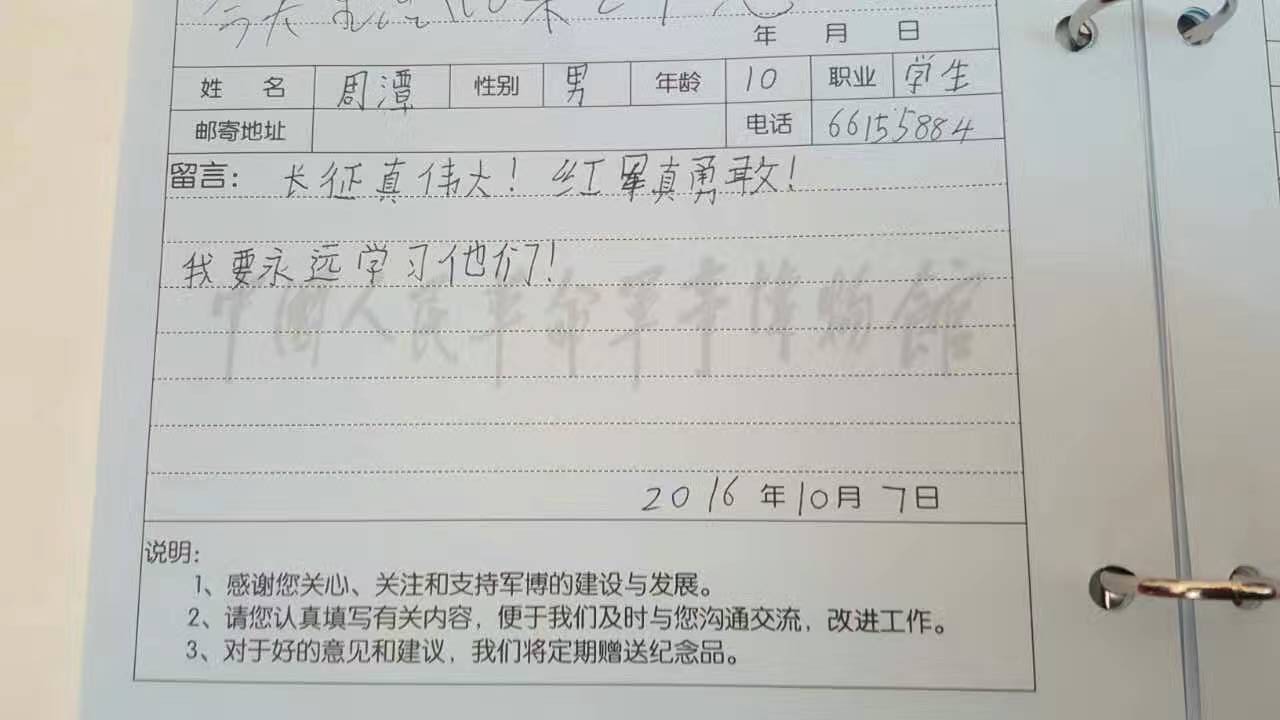 今天
年 月 日
姓 名 周潭 性别 男 年龄 10 职业 学生
邮寄地址 电话 66155884
留言: 长征真伟大! 红军真勇敢!
我要永远学习他们!
中國人民革命軍事博物館
2016年10月7日
说明:
1、感谢您关心、关注和支持军博的建设与发展。
2、请您认真填写有关内容,便于我们及时与您沟通交流,改进工作。
3、对于好的意见和建议,我们将定期赠送纪念品。